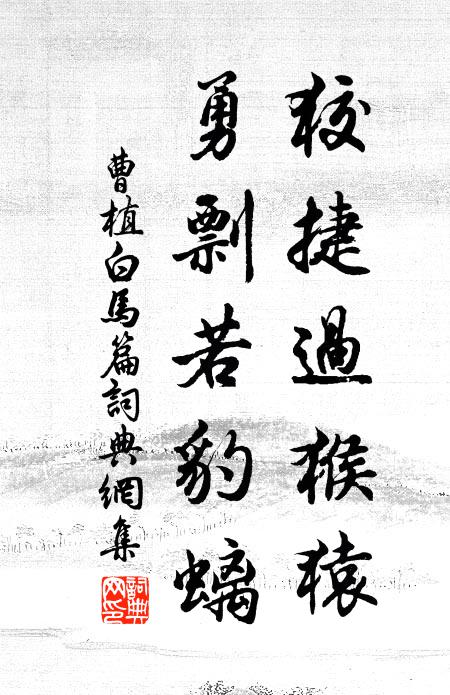 狡捷過猴猿
勇剽若豹螭
曹植白馬篇詞典網集
詞典网印